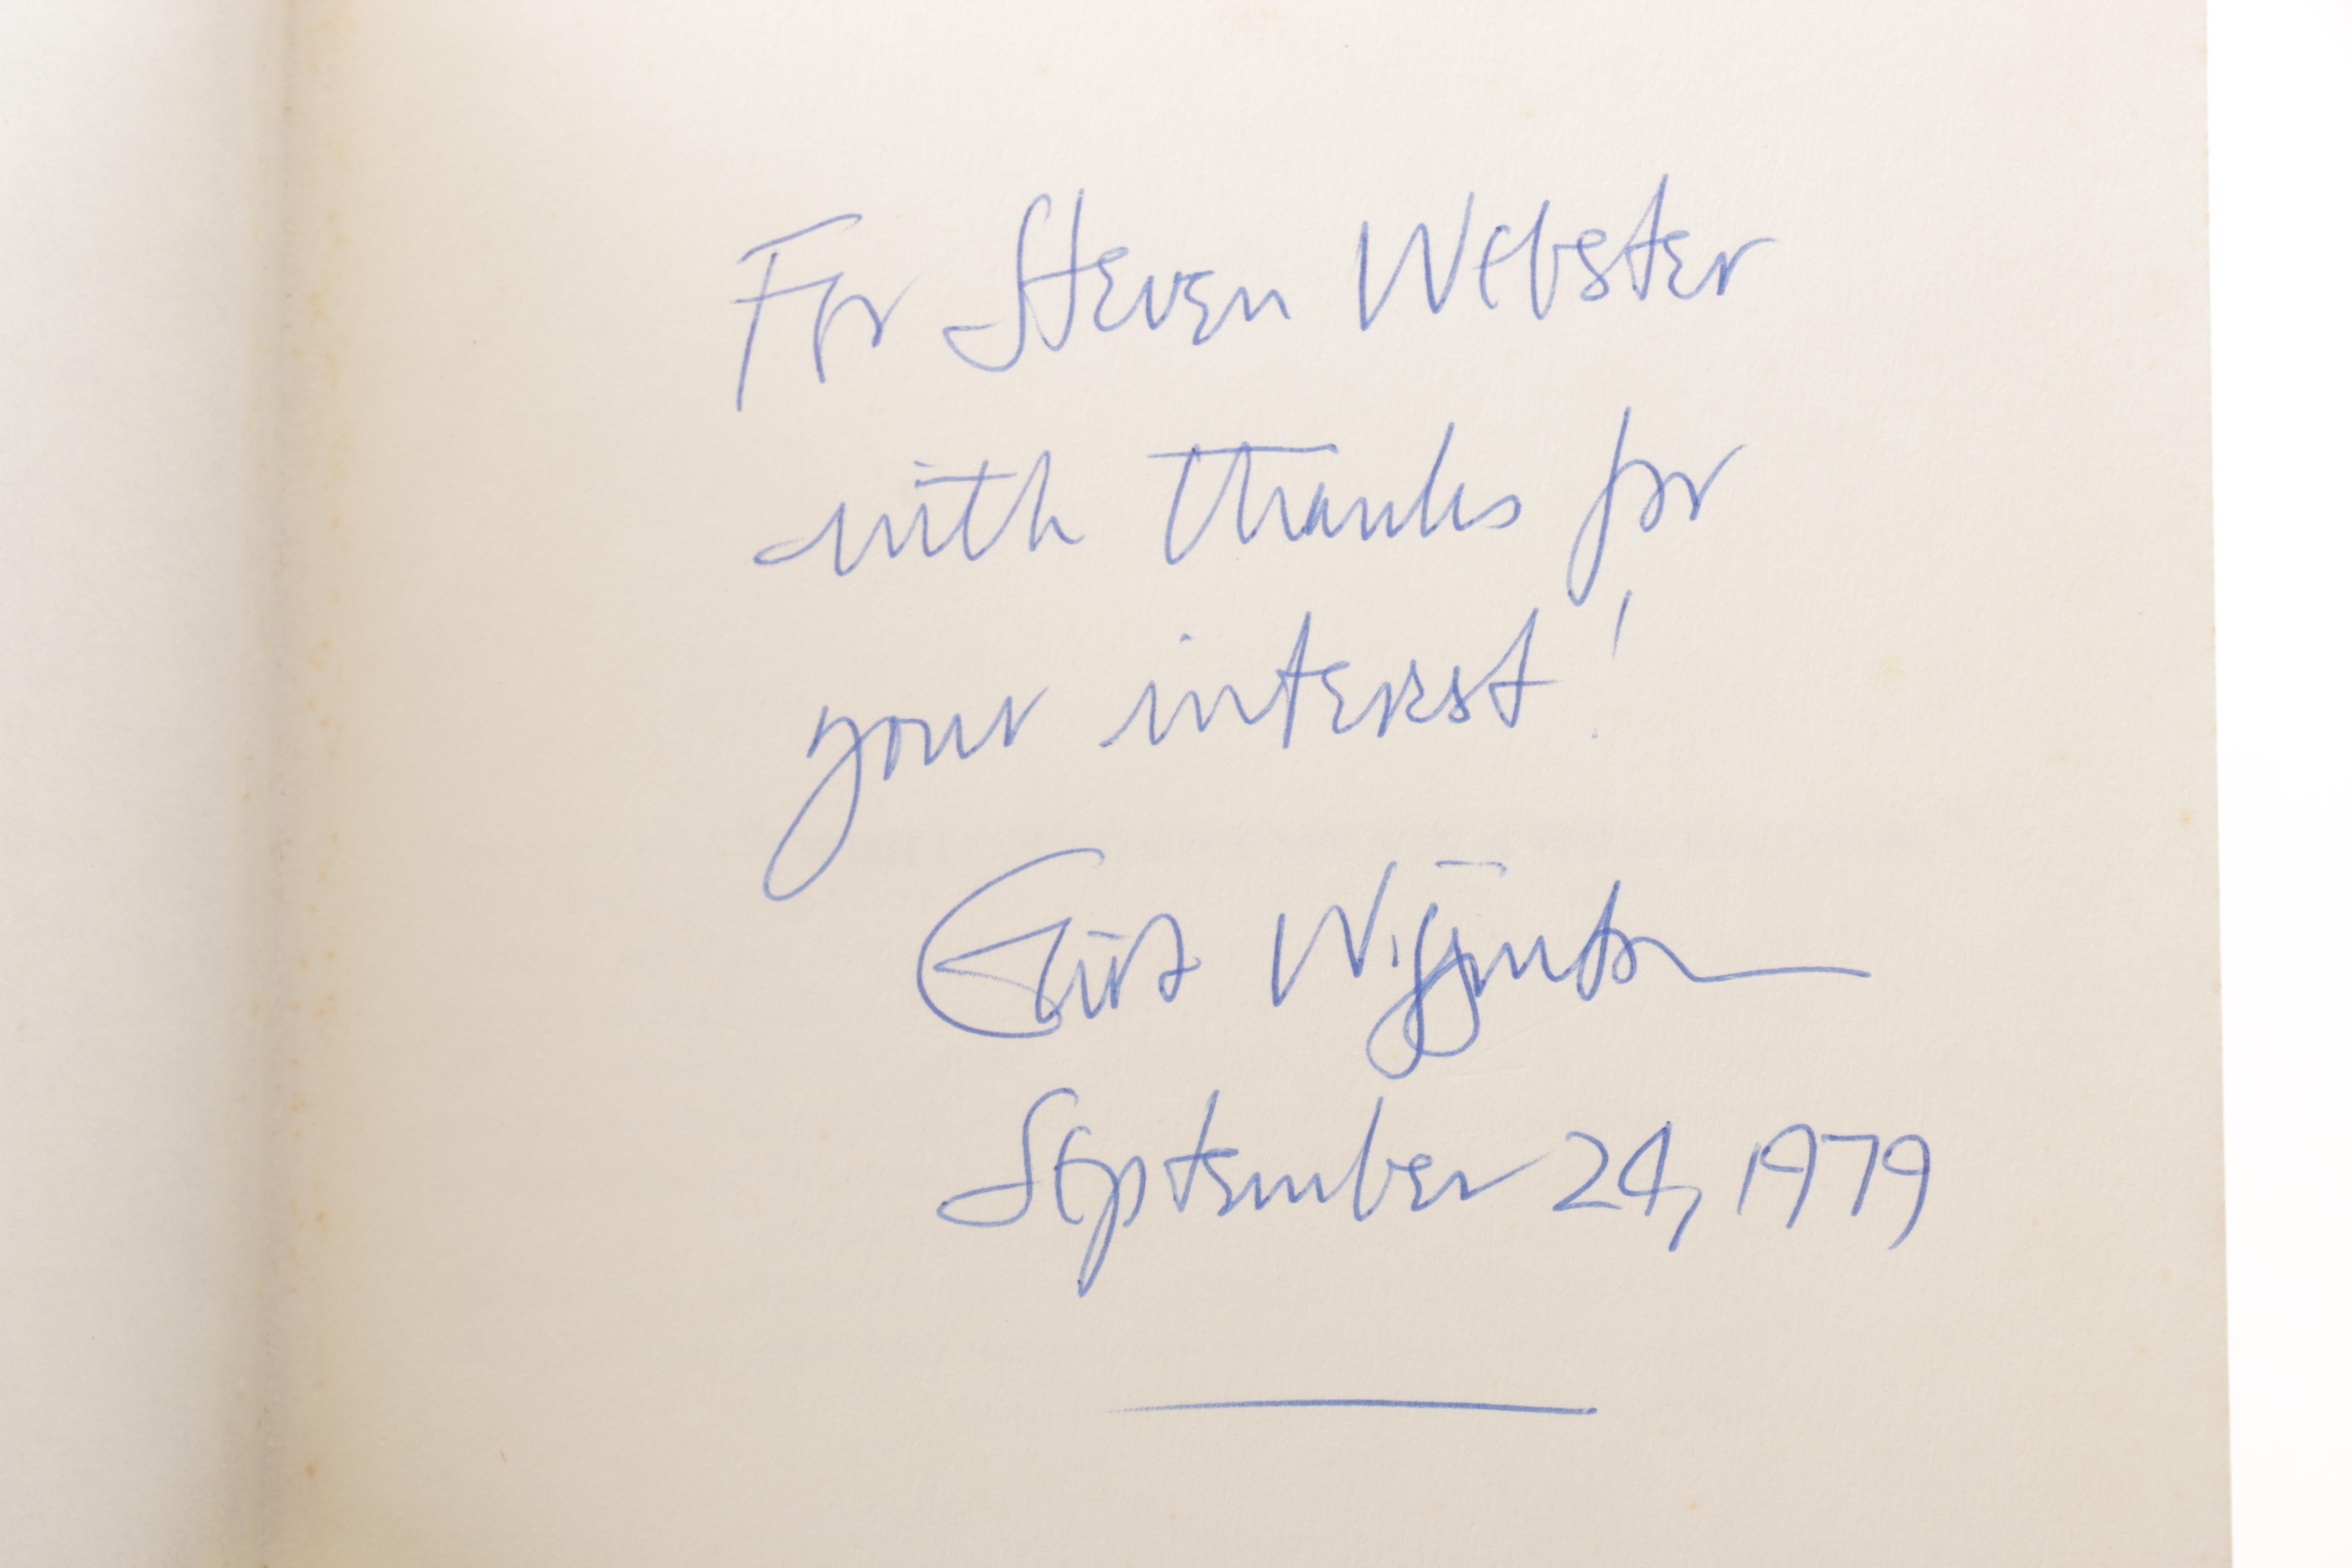 For Steven Webster
with thanks for
your interest!
Eliot Wigginton
September 24, 1979